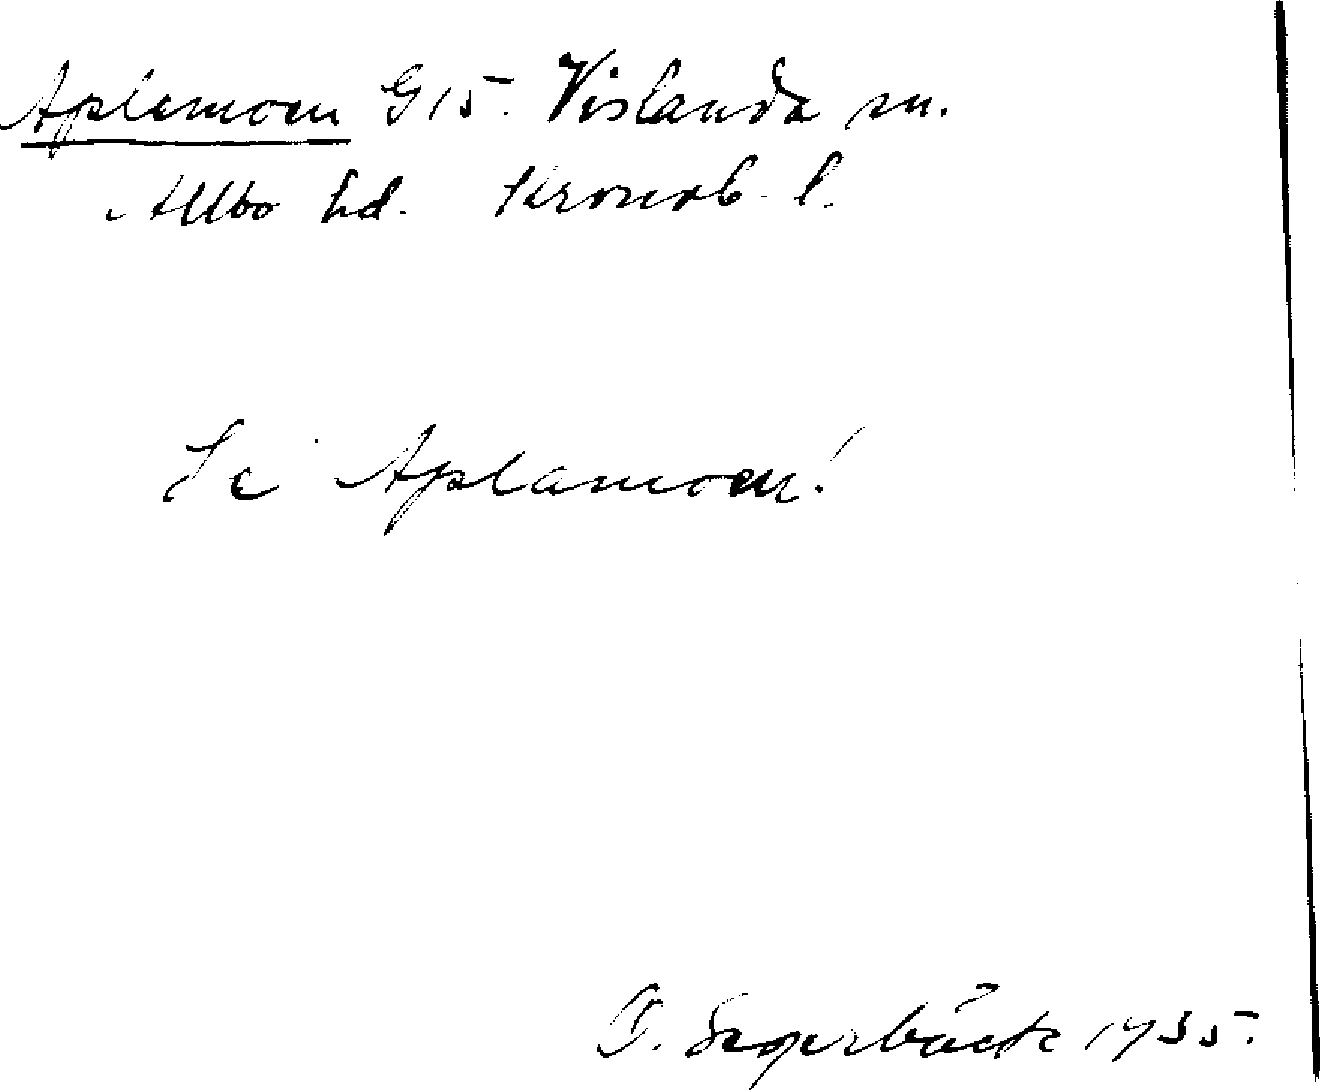 Aplemoen G15. Vislanda sn.
Allbo hd. Kronob. l.
Se Aplamoen!
1935.